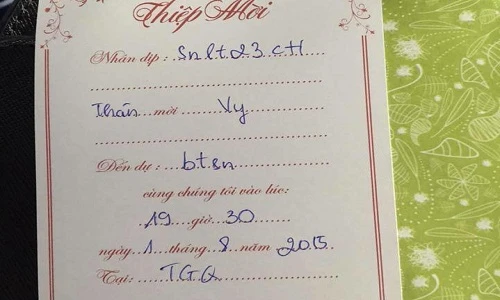 Thiệp Mời
Nhân dịp : Snlt23 cH
Thân mời Vy
Đến dự : btsn
cùng chúng tôi vào lúc:
19 giờ 30
ngày 1 tháng 8 năm 2015
Tại: TGQ